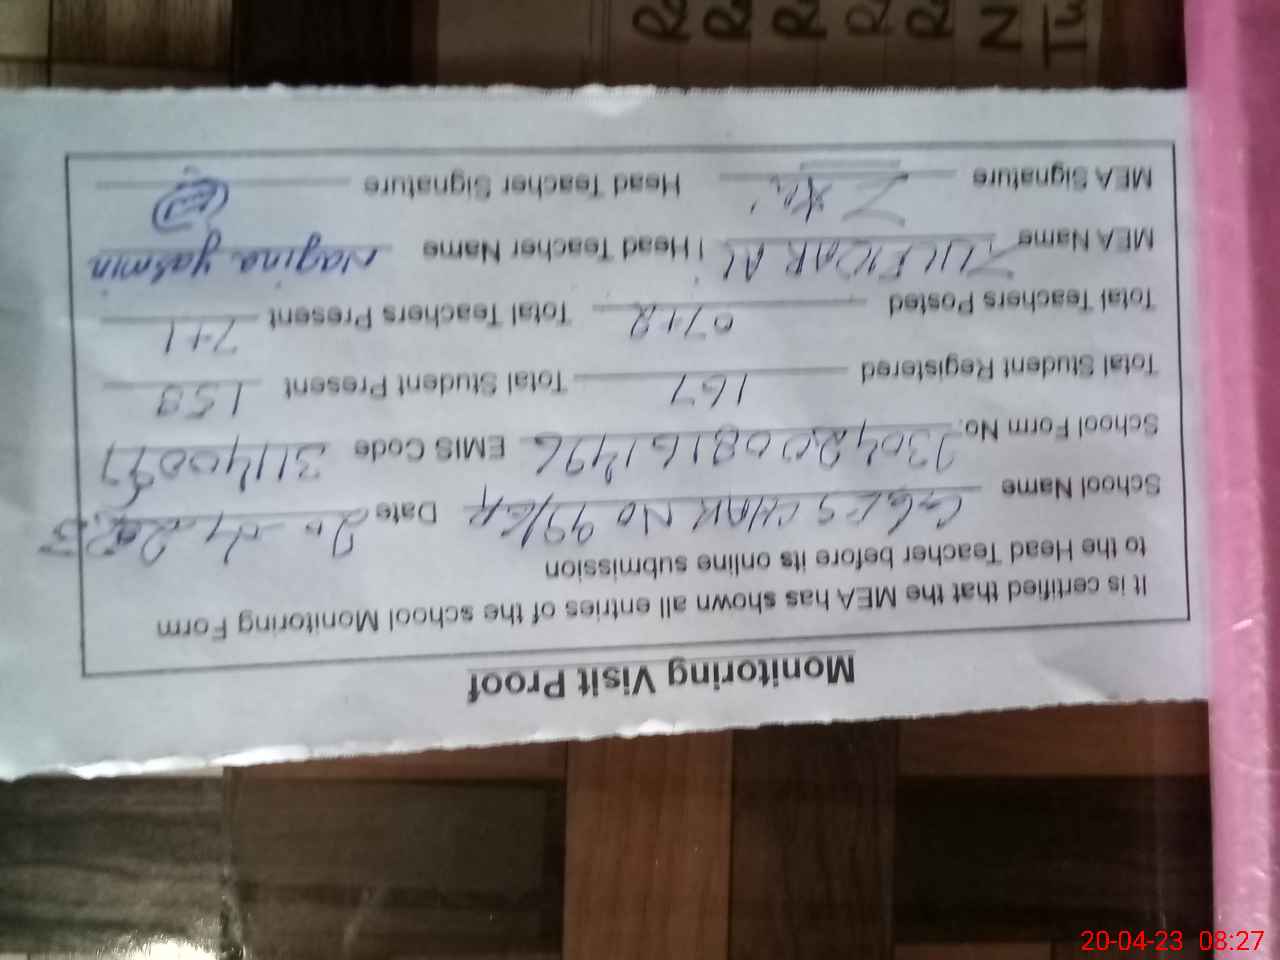 Monitoring Visit Proof
It is certified that the MEA has shown all entries of the school Monitoring Form
to the Head Teacher before its online submission
School Name CHAK No 99/6R Date 20-04-2023
School Form No. EMIS Code
Total Student Registered 167 Total Student Present 158
Total Teachers Posted 07+2 Total Teachers Present 7+1
MEA Name ZULFIQAR ALI Head Teacher Name Nagina yasmin
MEA Signature Head Teacher Signature
20-04-23 08:27